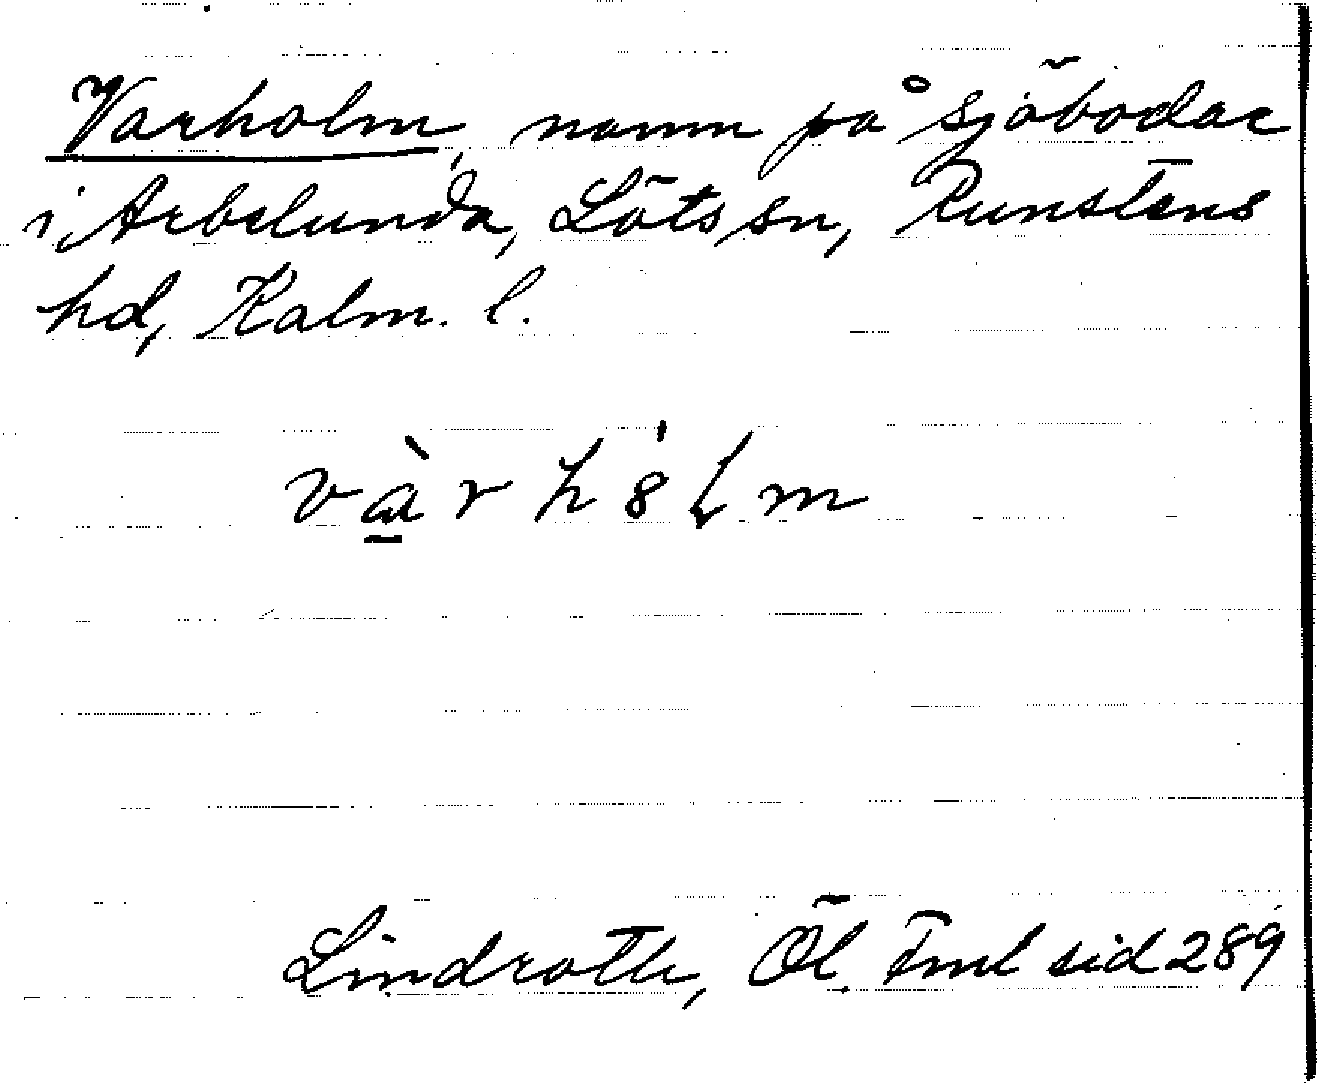 Varholm, namn på sjöbodar
i Arbelunda, Löts sn, Runstens
hd, Kalm. l.
Lindroth, Öl. Fml sid 289